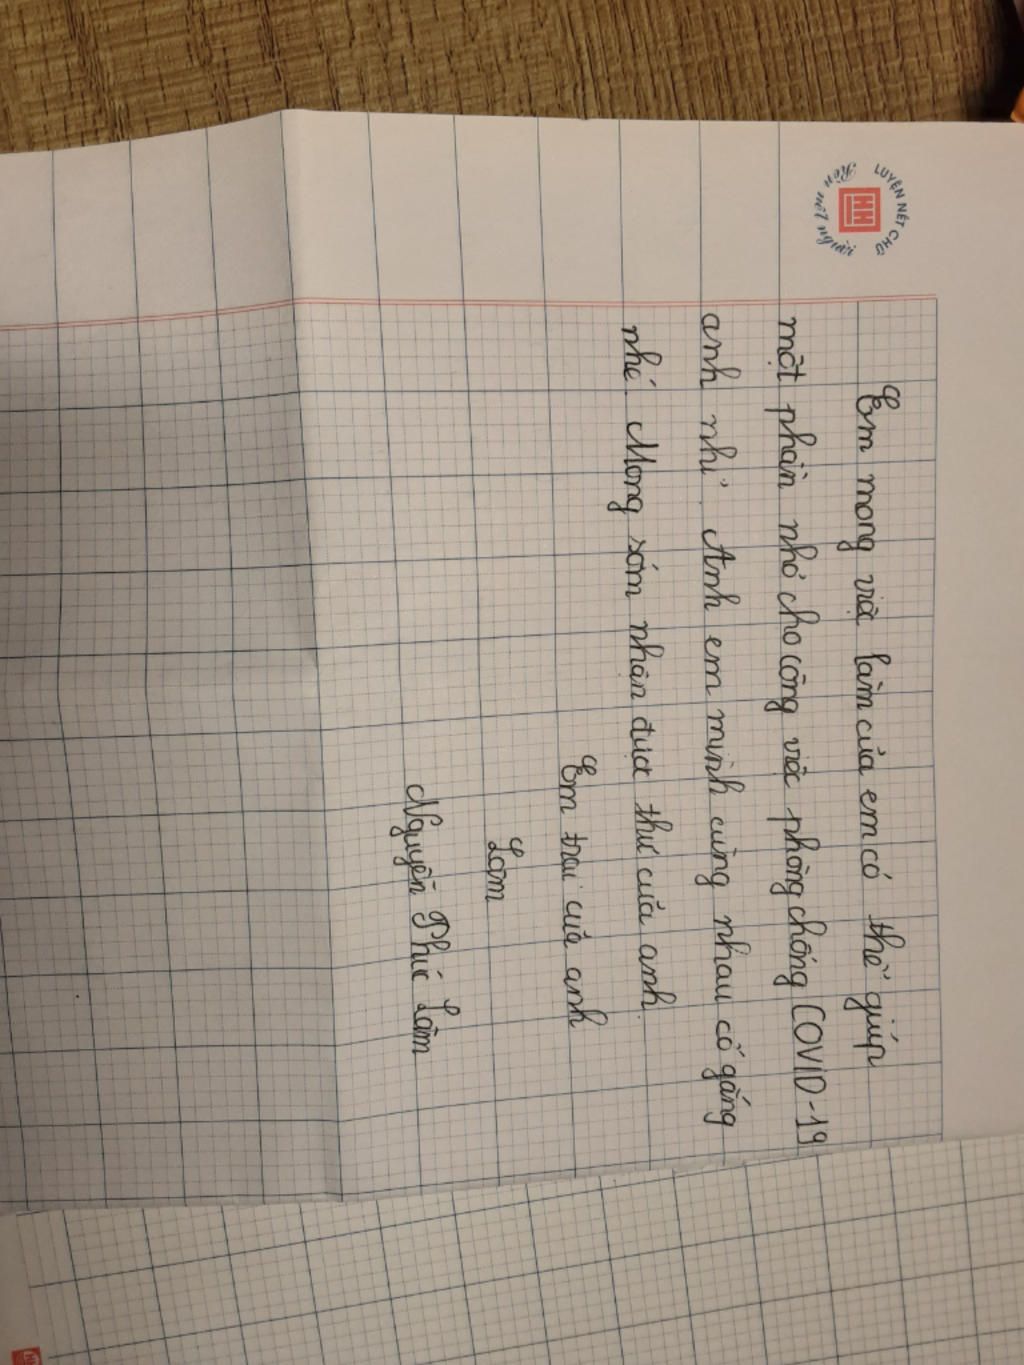 LUYỆN NÉT CHỮ
Rèn nết người
HH
Em mong việc làm của em có thể giúp
một phần nhỏ cho công việc phòng chống COVID-19
anh nhỉ. Anh em mình cùng nhau cố gắng
nhé. Mong sớm nhận được thư của anh.
Em trai của anh
Lâm
Nguyễn Phúc Lâm